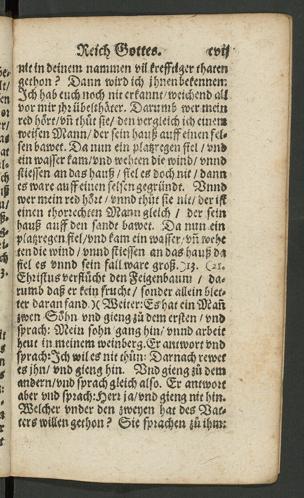 Reich Gottes. cvij
nit in deinem nammen vil krefftiger thaten
gethon? Dann wird ich jhnen bekennen:
Ich hab euch noch nie erkant/weichend all
vor mir jhr übelthäter. Darumb wer mein
red hört/vñ thüt sie/den vergleich ich einem
weisen Mann/der sein hauß auff einen fel-
sen bawet. Da nun ein platzregen fiel/vnd
ein wasser kam/vnd wehten die wind/vnnd
stiessen an das hauß/fiel es doch nit/dann
es ware auff einen felsen gegründt. Vnnd
wer mein red hört/vnnd thüt sie nit/der ist
einen thorechten Mann gleich/der sein
hauß auff den sandt bawet. Da nun ein
platzregen fiel/vnd kam ein wasser/vñ wehe
ten die wind/vnnd stiessen an das hauß da
fiel es vnnd sein fall ware groß.)13. (21.
Christus verflücht den Feigenbaum/da-
rumb daß er kein frucht/sonder allein blet-
ter daran fand.)( Weiter: Es hat ein Mañ
zwen Söhn vnd gieng zü dem ersten/vnd
sprach: Mein sohn gang hin/vnnd arbeit
heut in meinem weinberg. Er antwort vnd
sprach: Ich wil es nit thün: Darnach rewet
es jhn/vnd gieng hin. Vnd gieng zü dem
andern/vnd sprach gleich also. Er antwort
aber vnd sprach: Herr ja/vnd gieng nit hin.
Welcher vnder den zweyen hat des Vat-
ters willen gethon? Sie sprachen zü ihm: